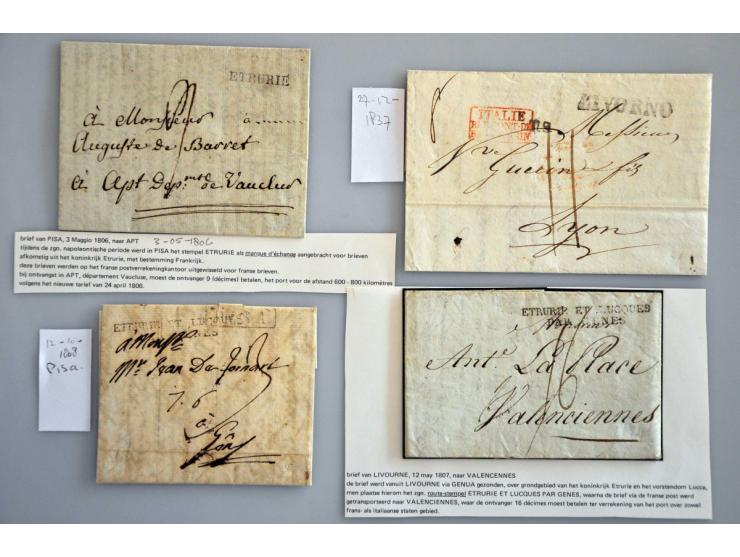 ETRURIE
à Monsieur à
Auguste de Barret
à Apt Dep.mt de Vaucluse
brief van PISA, 3 Maggio 1806, naar APT 3-05-1806
tijdens de zgn. napoleontische periode werd in PISA het stempel ETRURIE als marque d'échange aangebracht voor brieven
afkomstig uit het koninkrijk Etrurie, met bestemming Frankrijk.
deze brieven werden op het franse postverrekeningkantoor uitgewisseld voor franse brieven.
bij ontvangst in APT, départment Vaucluse, moest de ontvanger 9 (décimes) betalen, het port voor de afstand 600 - 800 kilomètres
volgens het nieuwe tarief van 24 april 1806.
27-12-
1837
ITALIE
LIVORNO
Messieurs
Guerin
Lyon
12-10-
1808
Pisa.
ETRURIE ET LUCQUES
7. 6
à
ETRURIE ET LUCQUES
PAR GENES
Ant.e La Place
Valenciennes
brief van LIVOURNE, 12 may 1807, naar VALENCENNES
de brief werd vanuit LIVOURNE via GENUA gezonden, over grondgebied van het koninkrijk Etrurie en het vorstendom Lucca,
men plaatse hierom het zgn. route-stempel ETRURIE ET LUCQUES PAR GENES, waarna de brief via de franse post werd
getransporteerd naar VALENCIENNES, waar de ontvanger 16 décimes moest betalen ter verrekening van het port over zowel
frans- als italiaanse staten gebied.